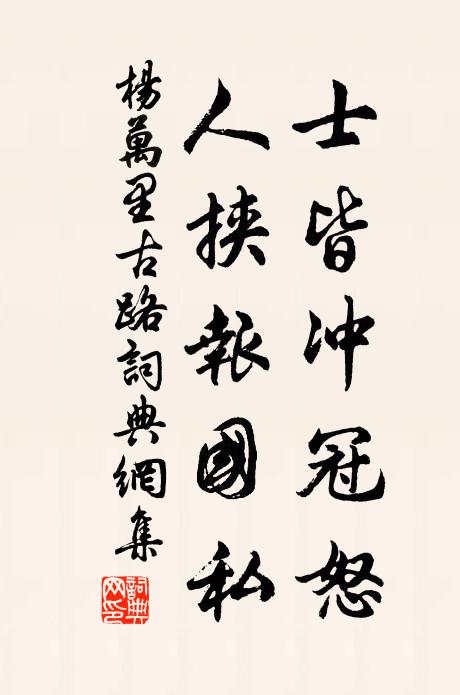 士皆冲冠怒
人挟報國私
楊萬里古路詞典網集
詞典網印